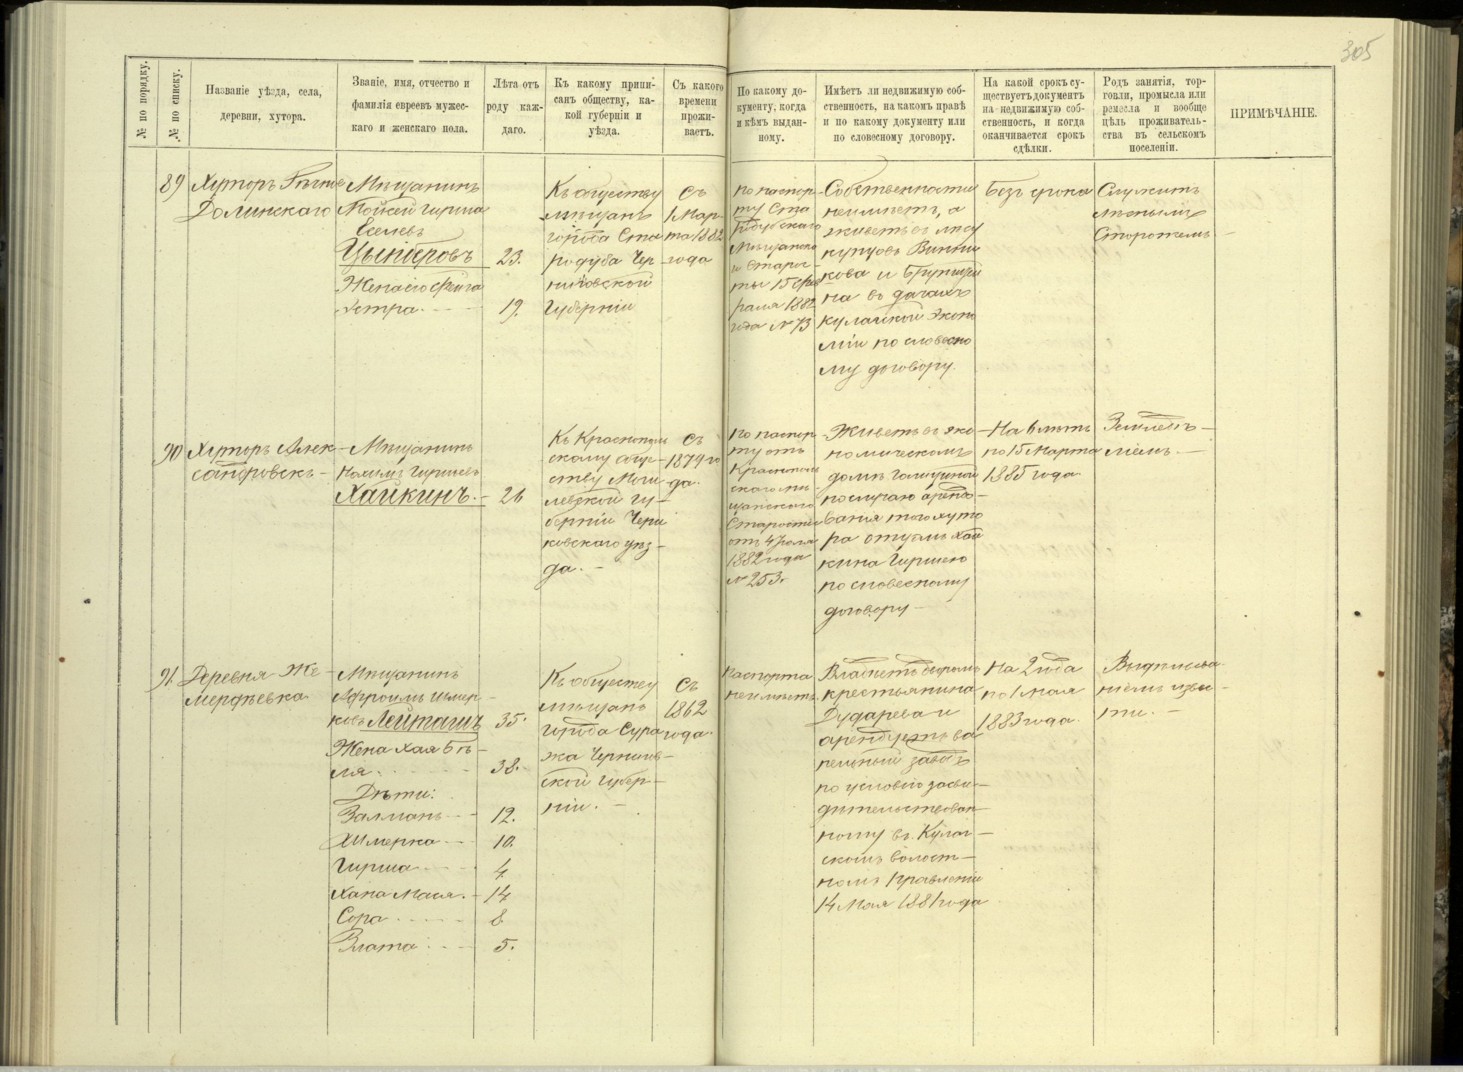 305
№ по порядку.
№ по списку.
Названіе уѣзда, села,
деревни, хутора.
Званіе, имя, отчество и
фамилія евреевъ мужес-
каго и женскаго пола.
Лѣта отъ
роду каж-
даго.
Къ какому припи-
санъ обществу, ка-
кой губерніи и
уѣзда.
Съ какого
времени
прожи-
ваетъ.
По какому до-
кументу, когда
и кѣмъ выдан-
ному.
Имѣетъ ли недвижимую соб-
ственность, на какомъ правѣ
и по какому документу или
по словесному договору.
На какой срокъ су-
ществуетъ документъ
на недвижимую соб-
ственность, и когда
оканчивается срокъ
сдѣлки.
Родъ занятія, тор-
говли, промысла или
ремесла и вообще
цѣль проживатель-
ства въ сельскомъ
поселеніи.
ПРИМѢЧАНІЕ.
89
Хуторъ
Долинскаго
Мѣщанинъ
Мойсей Гирша
Еселевъ
Цынгаровъ
23.
Жена его
Эстра
19.
Къ обществу
мѣщанъ
города Ста
родуба Чер
ниговской
Губерніи
Съ
1 Мар
та 1882
года
По паспор
ту Ста
родубскаго
Мѣщанска
го Старос
ты 15 Фев
раля 1882
года № 73
Собственности
неимѣетъ, а
живетъ въ лѣсу
купцовъ
кова и
на въ дачахъ
Кулацкой Эконо
міи по словесно
му договору.
Безъ срока
Служитъ
лѣснымъ
Сторожемъ
90
Хуторъ Алек
сандровскъ
Мѣщанинъ
Нохимъ Гиршевъ
Хайкинъ.
26
Къ Краснополь
скому обще
ству Моги
левской гу
берніи Чери
ковскаго уѣз
да.
Съ
1879 го
да.
По паспор
ту отъ
Краснополь
скаго мѣ
щанскаго
Старосты
отъ 4 Іюля
1882 года
№ 253.
Живетъ въ эко
номическомъ
домѣ
по случаю арендо
ванія того хуто
ра отцемъ Хай
кина Гиршею
по словесному
договору
На 6 лѣтъ
по 15 Марта
1885 года
Земледѣ
ліемъ.
91
Деревня Же
мердѣевка
Мѣщанинъ
Афроимъ Шмер
ковъ Лейташъ
35.
Жена Хая Бѣ
ля.
38.
Дѣти:
Залманъ
12.
Шмерка
10.
Гирша
4.
Хана Мася.
14
Сора
8
Злата
5.
Къ обществу
мѣщанъ
города Сура
жа Чернигов
ской Губер
ніи.
Съ
1862
года.
Паспорта
неимѣетъ.
Владѣетъ дворомъ
крестьянина
Дударева и
арендуетъ ва
рельный заводъ
по условію засви
дѣтельствован
ному въ Кулаж
скомъ Волост
номъ Правленіи
14 Мая 1881 года
На 2 года
по 1 Мая
1883 года.
Выдѣлыва
ніемъ изве
сти.